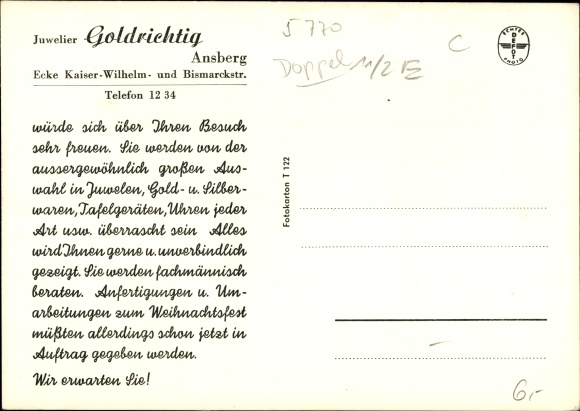 Juwelier Goldrichtig
Ansberg
Ecke Kaiser-Wilhelm- und Bismarckstr.
Telefon 12 34
würde sich über Ihren Besuch
sehr freuen. Sie werden von der
aussergewöhnlich großen Aus-
wahl in Juwelen, Gold- u. Silber-
waren, Tafelgeräten, Uhren jeder
Art usw. überrascht sein Alles
wird Ihnen gerne u. unverbindlich
gezeigt. Sie werden fachmännisch
beraten. Anfertigungen u. Um-
arbeitungen zum Weihnachtsfest
müßten allerdings schon jetzt in
Auftrag gegeben werden.
Wir erwarten Sie!
5770
Doppel 11/2
C
ECHTES
DEFOT
PHOTO
Fotokarton T 122
6,-